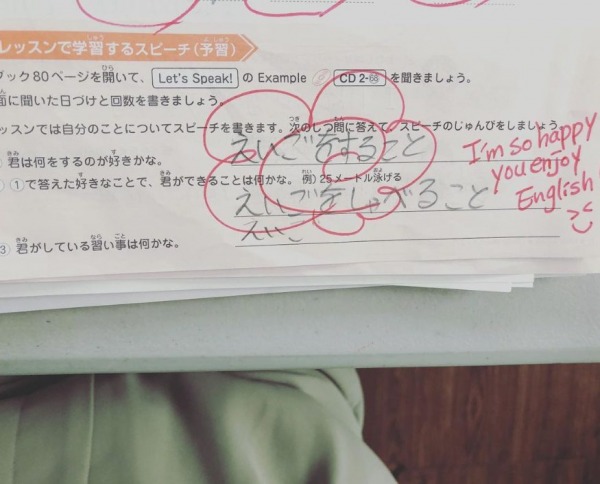 レッスンで学習するスピーチ(予習)
ブック80ページを開いて、 Let's Speak! の Example CD 2-66 を聞きましょう。
面に聞いた日づけと回数を書きましょう。
レッスンでは自分のことについてスピーチを書きます。次のしつ問に答えて、スピーチのじゅんびをしましょう
君は何をするのが好きかな。
えいごをすること
①で答えた好きなことで、君ができることは何かな。 例) 25メートル泳げる
えいごをしゃべること
3 君がしている習い事は何かな。
えいご
I'm so happy
you enjoy
English